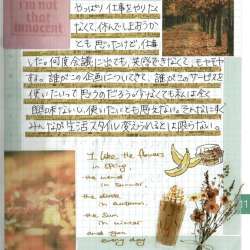 i'm not
that
innocent
やっぱり仕事をやりたく
なくて、休んでしまおうか
とも思ったけど、仕事
した。何度会議に出ても、共感できなくて、モヤモヤ
する。誰がこの企画について、誰がこのサービスを
使いたいって思うのだろうか。少なくとも私は全く
興味ないし、使いたいとも思えない。そんなにすぐ
みんなが生活スタイル変えられるとは限らない。
I like the flowers
in spring,
the wind
in summer,
in autumn,
the sun
in winter
and you
every day
11